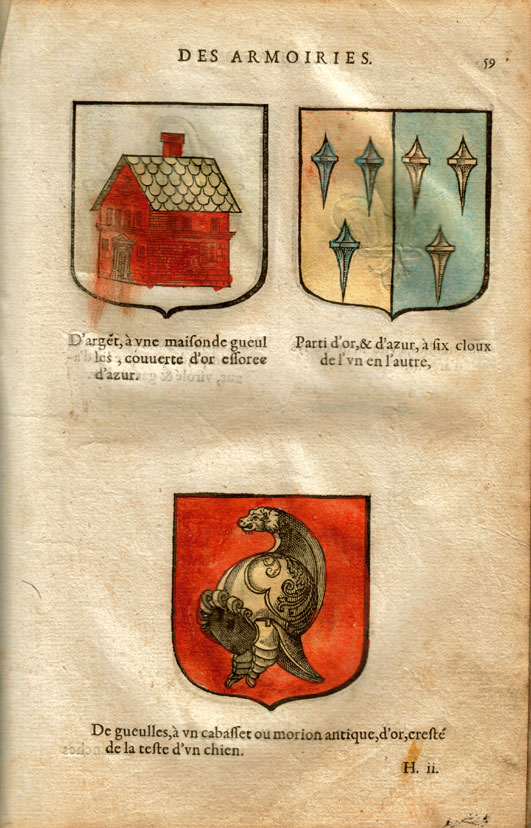 DES ARMOIRIES.
59
D'argẽt, à vne maiſonde gueul
les, couuerte d'or eſſoree
d'azur.
Parti d'or,& d'azur, à ſix cloux
de l'vn en l'autre,
De gueulles,à vn cabaſſet ou morion antique,d'or,creſté
de la teſte d'vn chien.
H. ii.